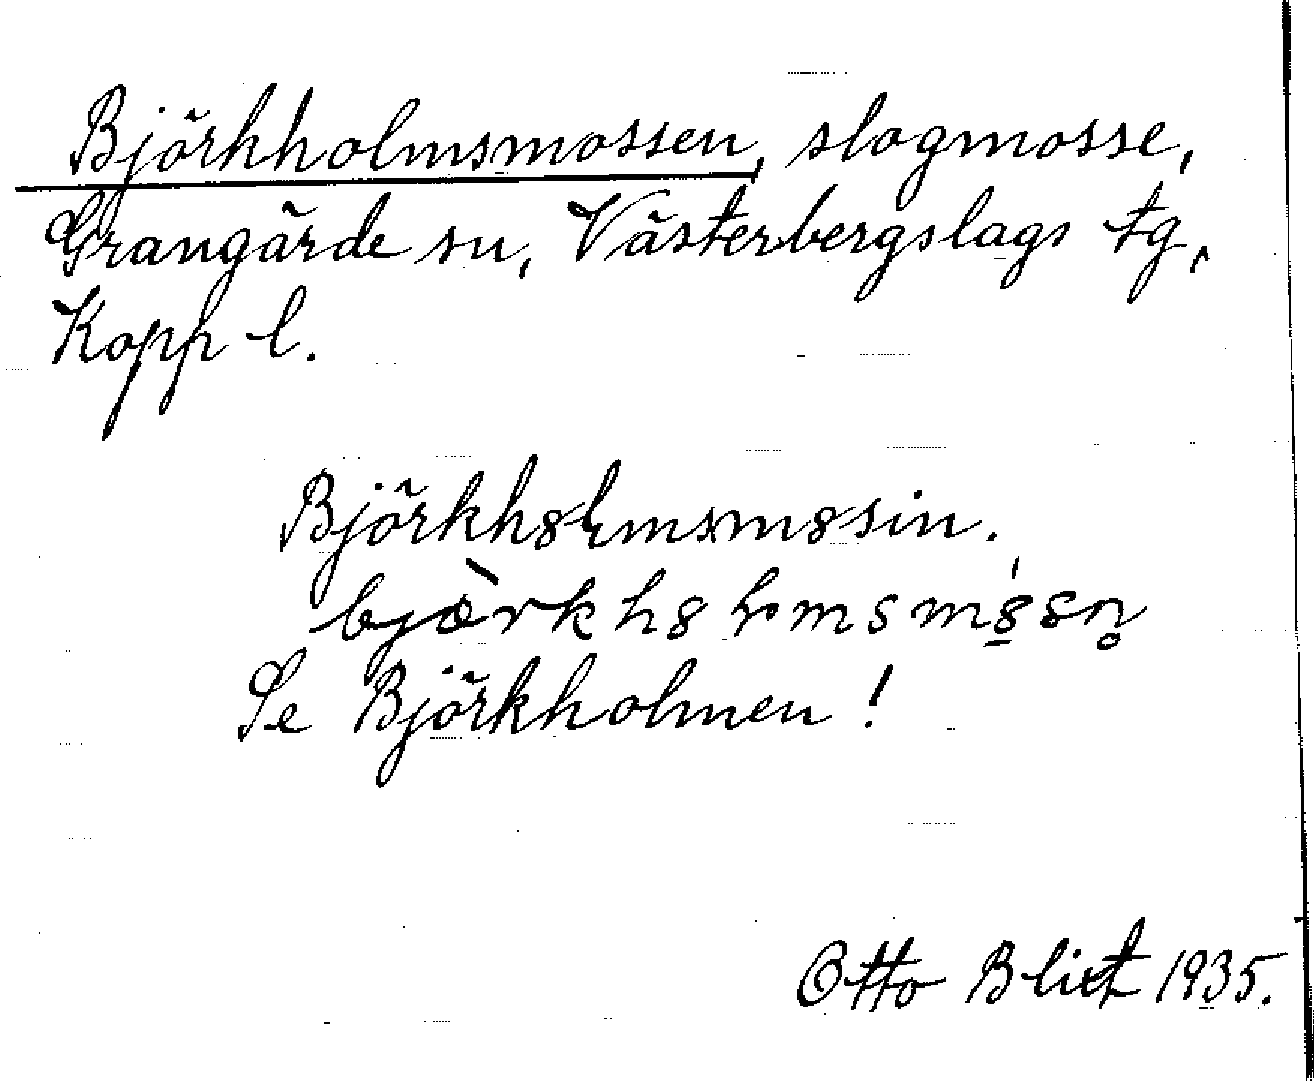 Björkholmsmossen, slogmosse,
Grangärde sn, Västerbergslags tg,
Kopp l.
Björkh8ɽmsm8sin.
bjæ̀rkh8ɽmsm8̲́sn̥
Se Björkholmen!
Otto Blixt 1935.